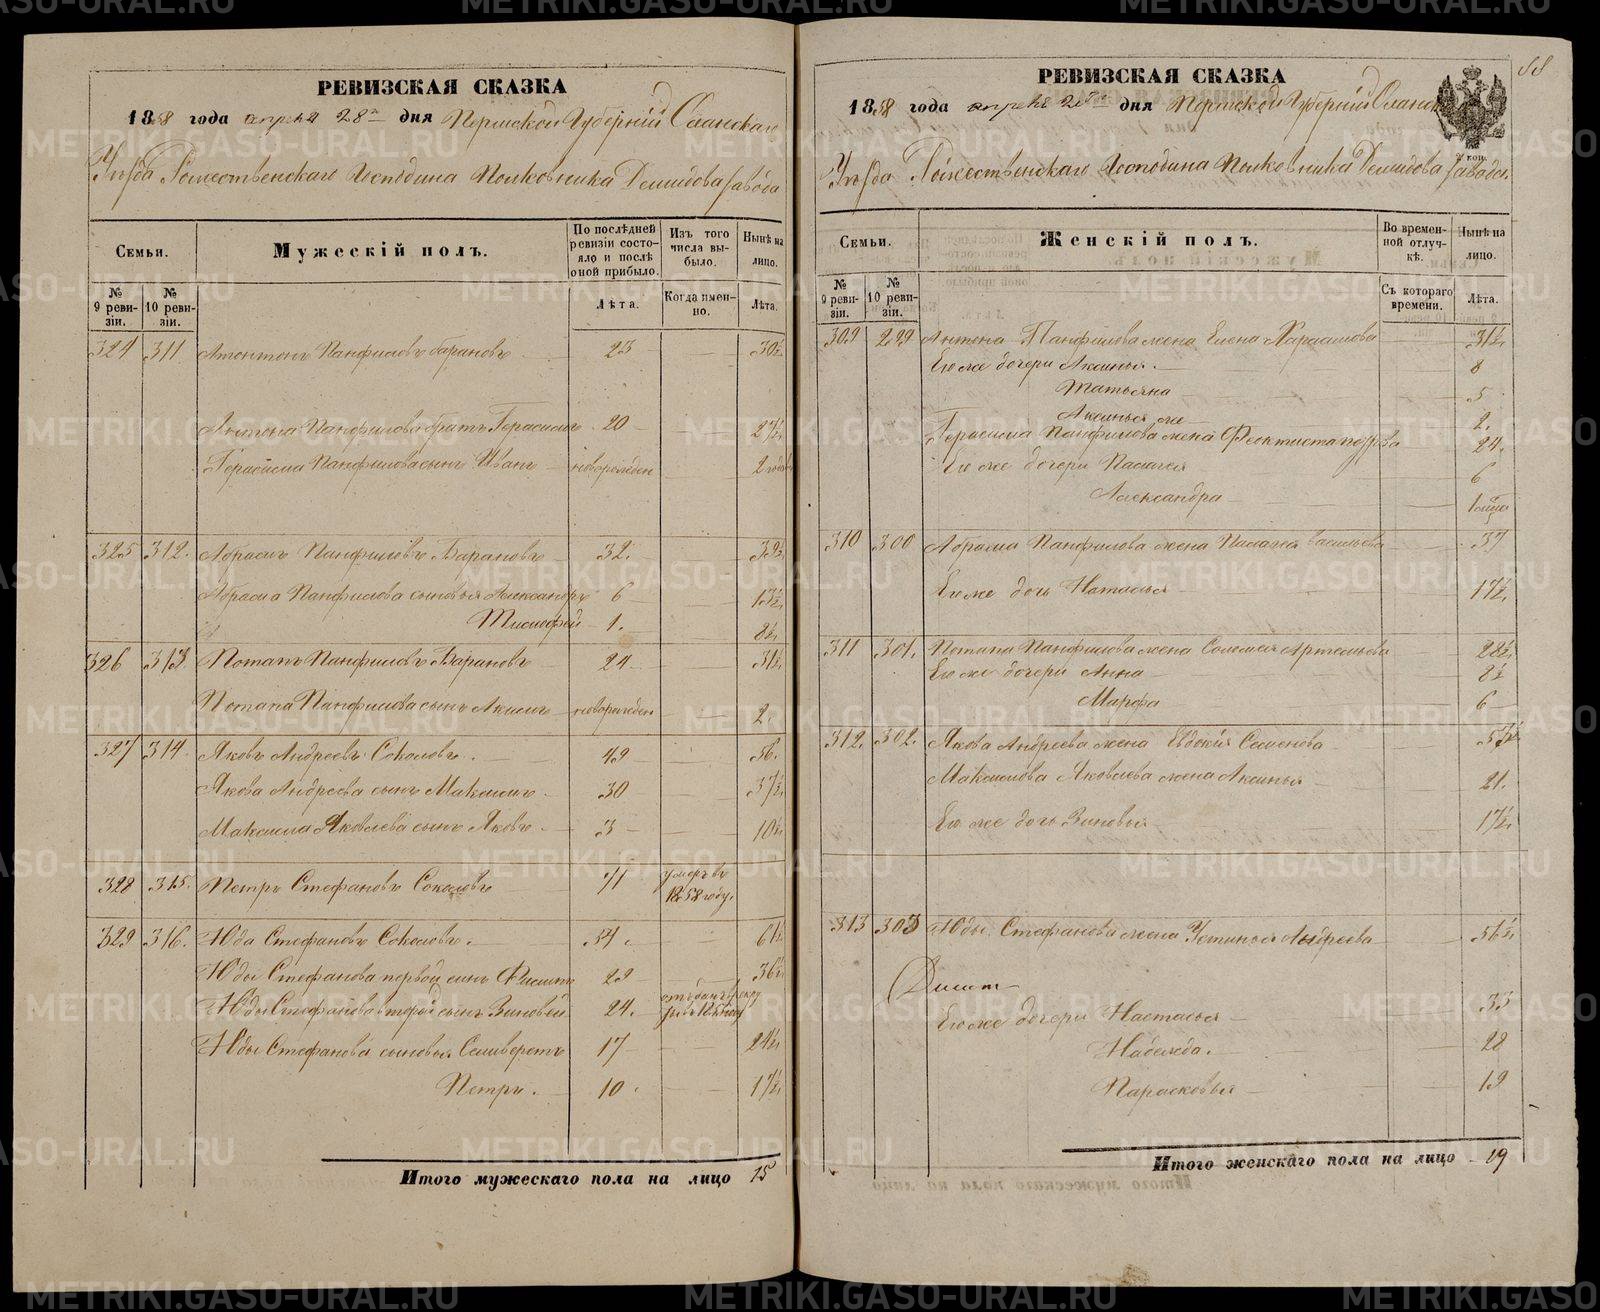 РЕВИЗСКАЯ СКАЗКА
1858 года апреля 28го дня Пермской Губернiи Оханскаго
Уѣзда Рожественскаго Господина Полковника Демидова завода
Семьи.
Мужескiй полъ.
По послѣдней ревизiи состояло и послѣ оной прибыло.
Изъ того числа выбыло.
Нынѣ на лицо.
№ 9 ревизiи.
№ 10 ревизiи.
Лѣта.
Когда именно.
Лѣта.
324 311 Антонъ Панфиловъ Барановъ 23 30½
Антона Панфилова братъ Герасимъ 20 27½
Герасима Панфилова сынъ Иванъ новорожден 2 года
325 312. Абрамъ Панфиловъ Барановъ 32. 39½
Абрама Панфилова сыновья Александръ 6 13½
Тимофей 1. 8½
326 313. Потапъ Панфиловъ Барановъ 24 31½
Потапа Панфилова сынъ Акимъ новорожден 2.
327 314 Яковъ Андреевъ Соколовъ. 49 56.
Якова Андреева сынъ Максимъ 30 37½
Максима Яковлева сынъ Яковъ 3 10½
328 315. Петръ Стефановъ Соколовъ 71 умеръ въ 1858 году.
329 316. Юда Стефановъ Соколовъ. 54. 61½
Юды Стефанова первой сынъ Филипъ 29 36½
Юды Стефанова второй сынъ Зиновей 24.
Юды Стефанова сыновья Селиверстъ 17 24½
Петръ. 10. 17½
Итого мужескаго пола на лицо 15
88
РЕВИЗСКАЯ СКАЗКА
1858 года апреля 28го дня Пермской Губернiи Оханск
Уѣзда Рожественскаго Господина Полковника Демидова завода.
Семьи.
Женскiй полъ.
Во временной отлучкѣ.
Нынѣ на лицо.
№ 9 ревизiи.
№ 10 ревизiи.
Съ котораго времени.
Лѣта.
309 299 Антона Панфилова жена Елена 31½
Ею же дочери Аксинья. 8
Татьяна 5
Аксинья же 2.
Герасима Панфилова жена Феоктиста 24.
Ею же дочери Палагея 6
Александра 1 мѣсяц
310 300 Абрама Панфилова жена Палагея Васильева 37
Ею же дочь Наталья 17½
311 301. Потапа Панфилова жена Соломея Артемьева 28½
Ею же дочери Анна 8½
Марфа 6
312. 302. Якова Андреева жена Евдокiя Семенова 57½
Максима Яковлева жена Аксинья 21.
Ею же дочь Зиновья 17½
313 303 Юды Стефанова жена Устинья Андреева 56½
Ею же дочери Настасья 33
Надежда. 28
Парасковья 19
Итого женскаго пола на лицо 19
METRIKI.GASO-URAL.RU